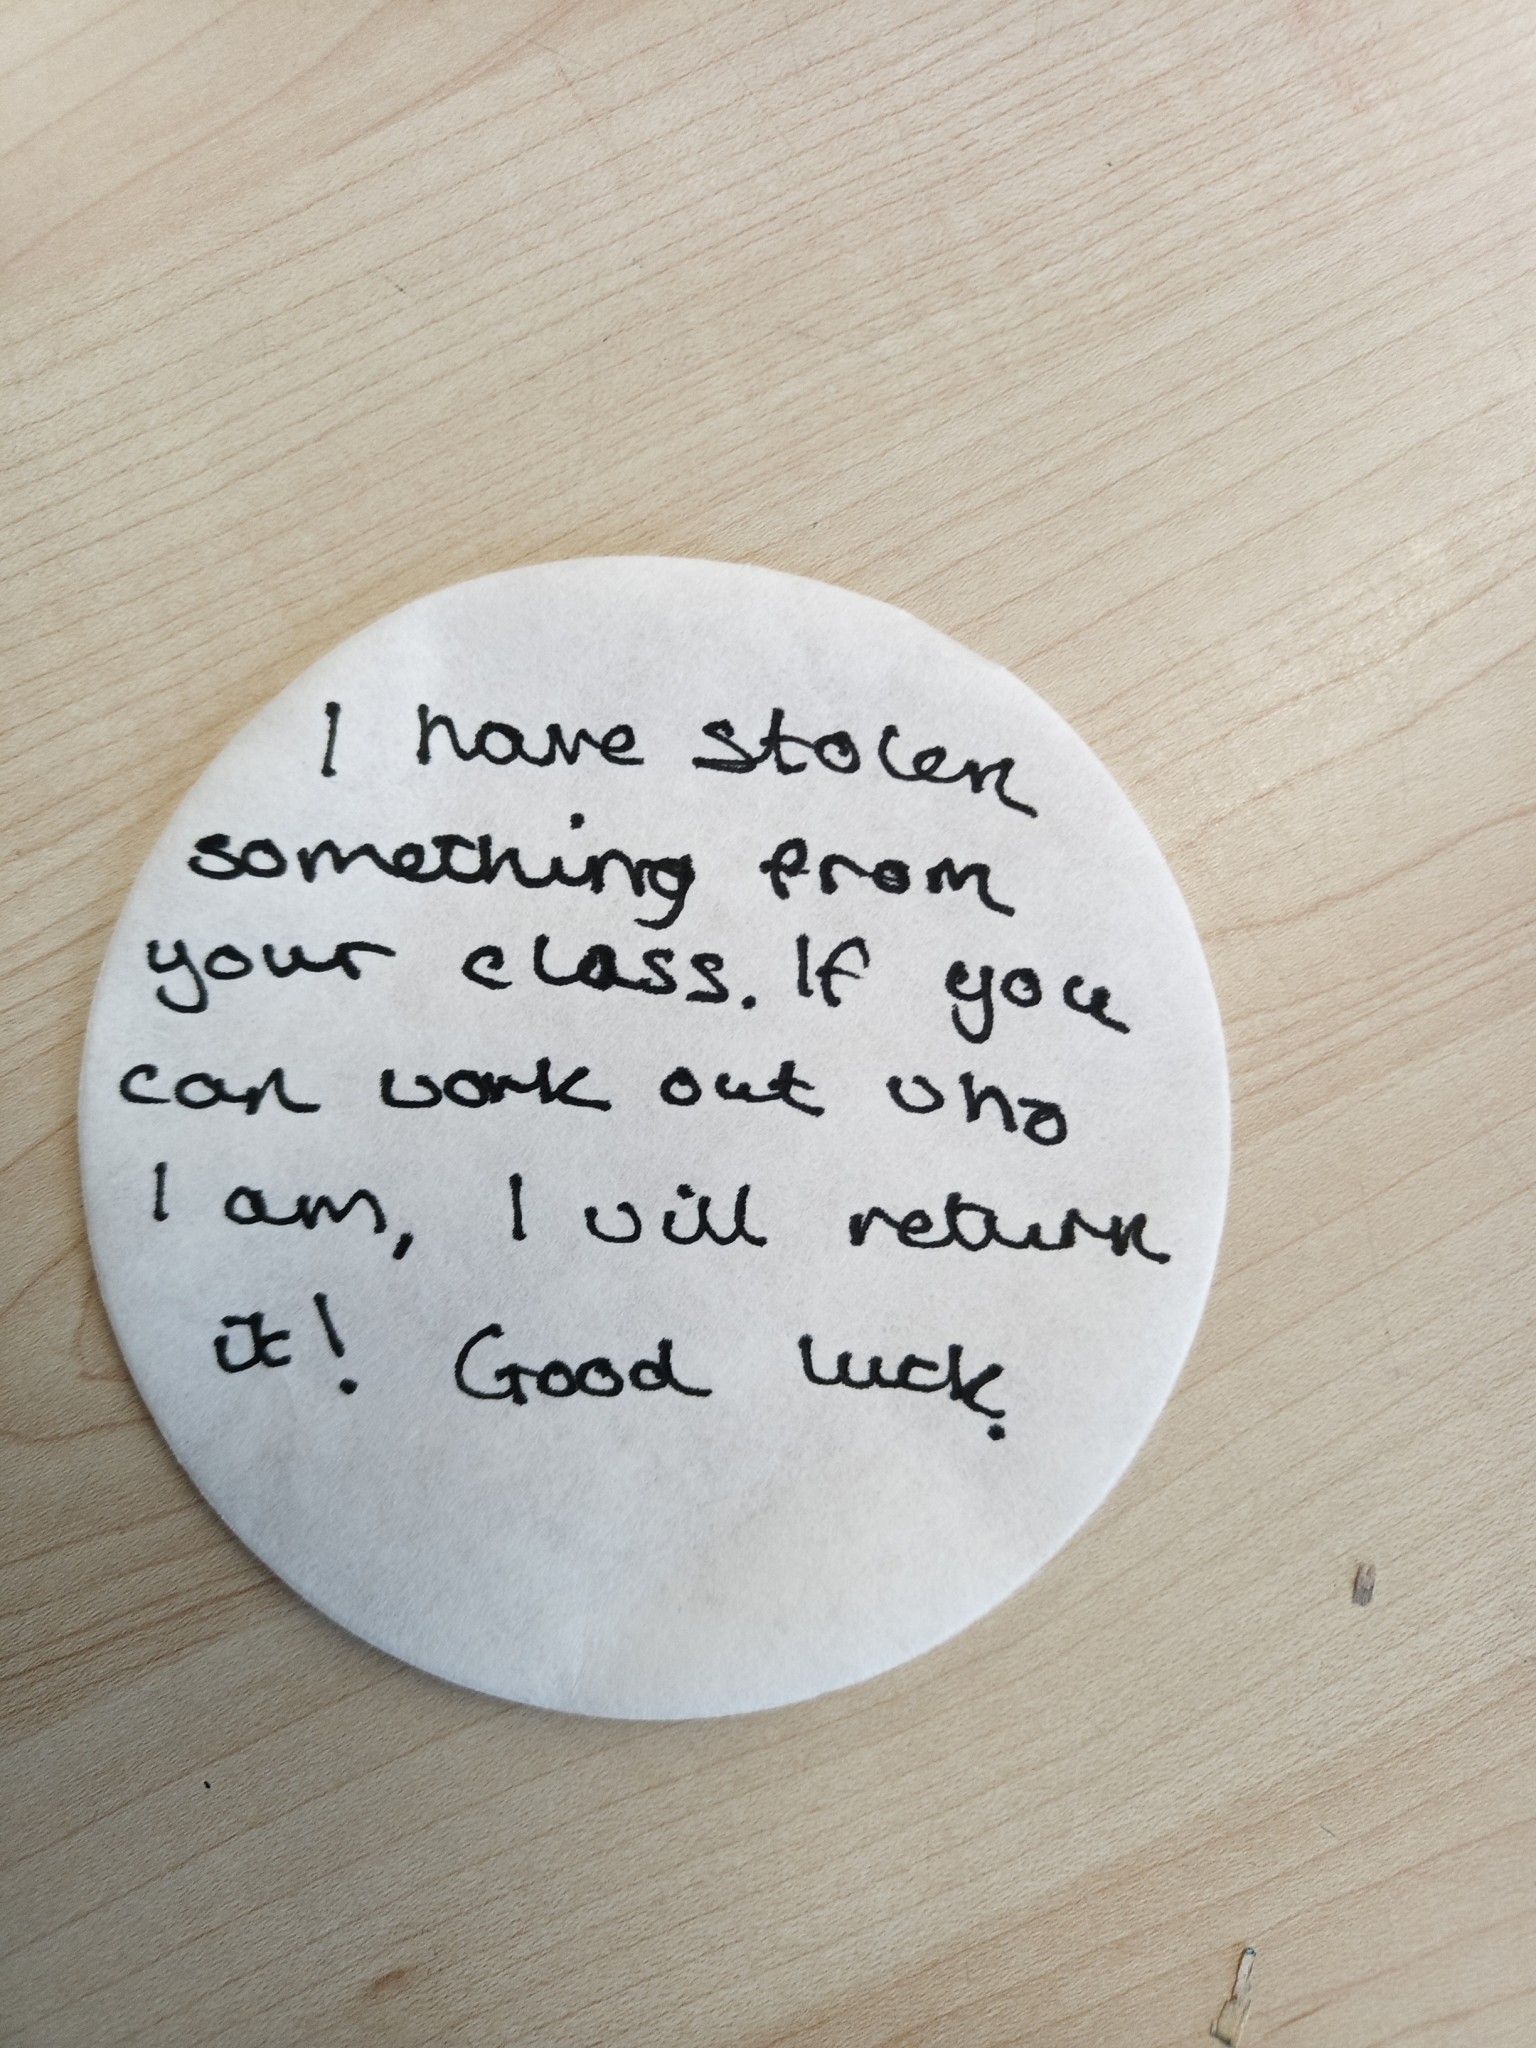 I have stolen
something from
your class. If you
can work out who
I am, I will return
it! Good luck.